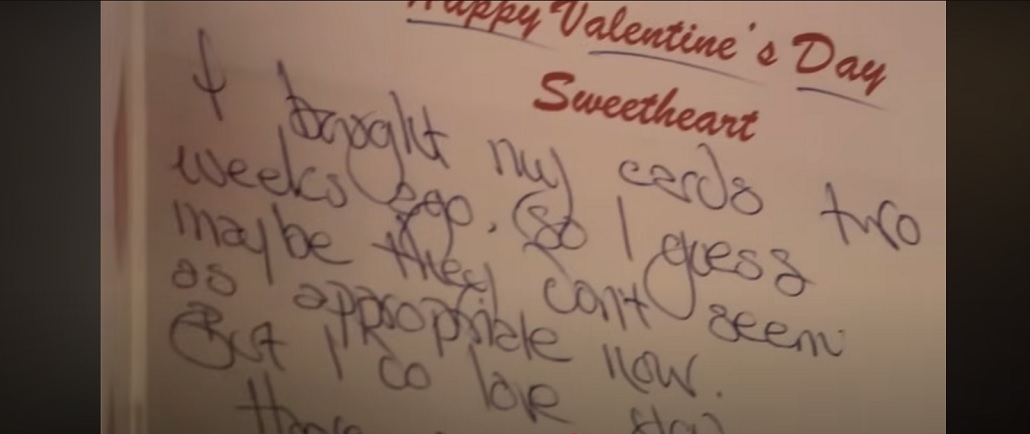 Happy Valentine's Day
Sweetheart
I bought my cards two
weeks ago. So I guess
maybe they can't seem
as appropriate now.
But I do love